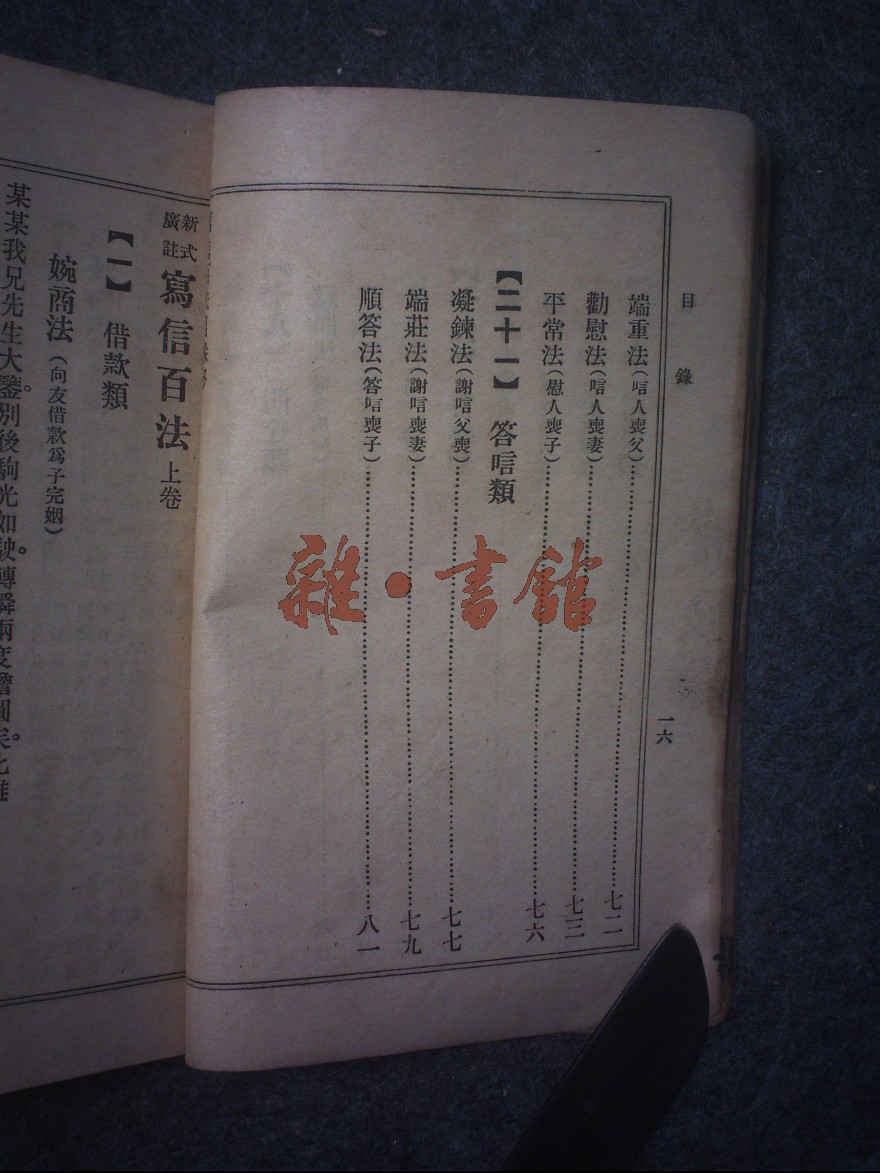 目錄
一六
端重法（唁人喪父）……七二
勸慰法（唁人喪妻）……七三
平常法（慰人喪子）……七六
【二十一】 答唁類
凝鍊法（謝唁父喪）……七七
端莊法（謝唁喪妻）……七九
順答法（答唁喪子）……八一
新式廣註 寫信百法 上卷
【一】 借款類
婉商法（向友借款爲子完姻）
某某我兄先生大鑒。別後駒光如駛。轉瞬兩度蟾圓矣。
雜·書館